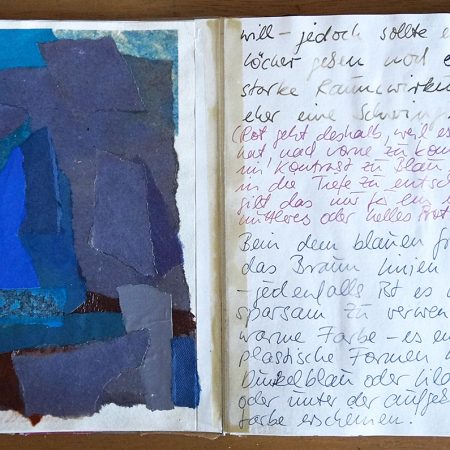 will – jedoch sollte e
Löcher geben und e
starke Raumwirku
eher eine Schwing
(Rot geht deshalb, weil es
hat nach vorne zu kom
im Kontrast zu Blau
in die Tiefe zu entsch
gilt das nur für ein
mittleres oder helles Rot
Bein dem blauen
das Braun Linien
– jedenfalls ist es
sparsam zu verwen
warme Farbe – es en
plastische Formen
Dunkelblau oder Lila
oder unter der aufge
Farbe erscheinen.